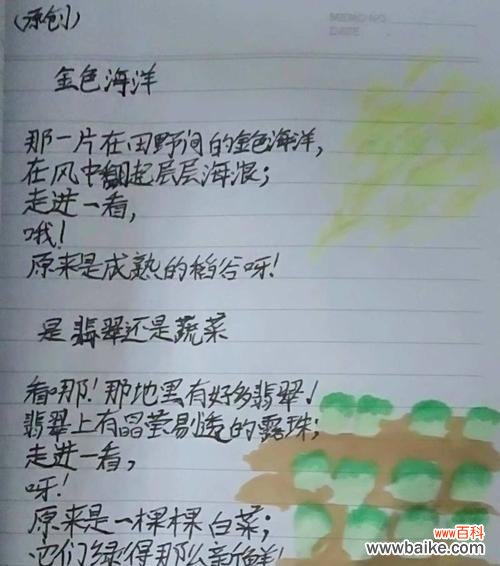 (原创)
MEMO NO.
DATE
金色海洋
那一片在田野间的金色海洋,
在风中翻起层层海浪;
走进一看,
哦!
原来是成熟的稻谷呀!
是翡翠还是蔬菜
看哪!那地里有好多翡翠!
翡翠上有晶莹易透的露珠;
走进一看,
呀!
原来是一棵棵白菜;
它们绿得那么新鲜!
www.百科
www.baike.com